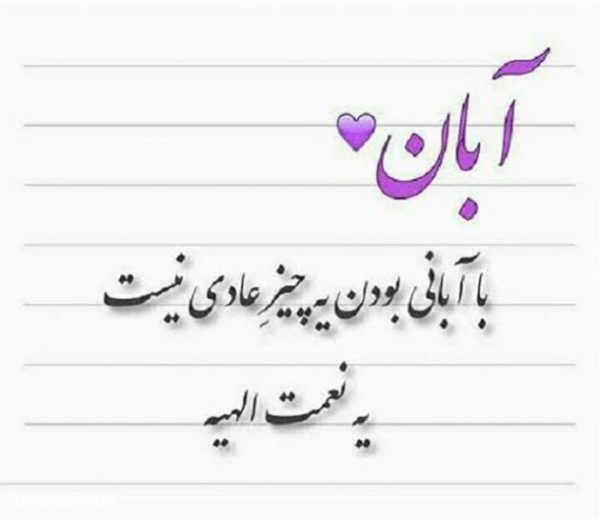 آبان💜
با آبانی بودن یه چیزِ عادی نیست
یه نعمت الهیه